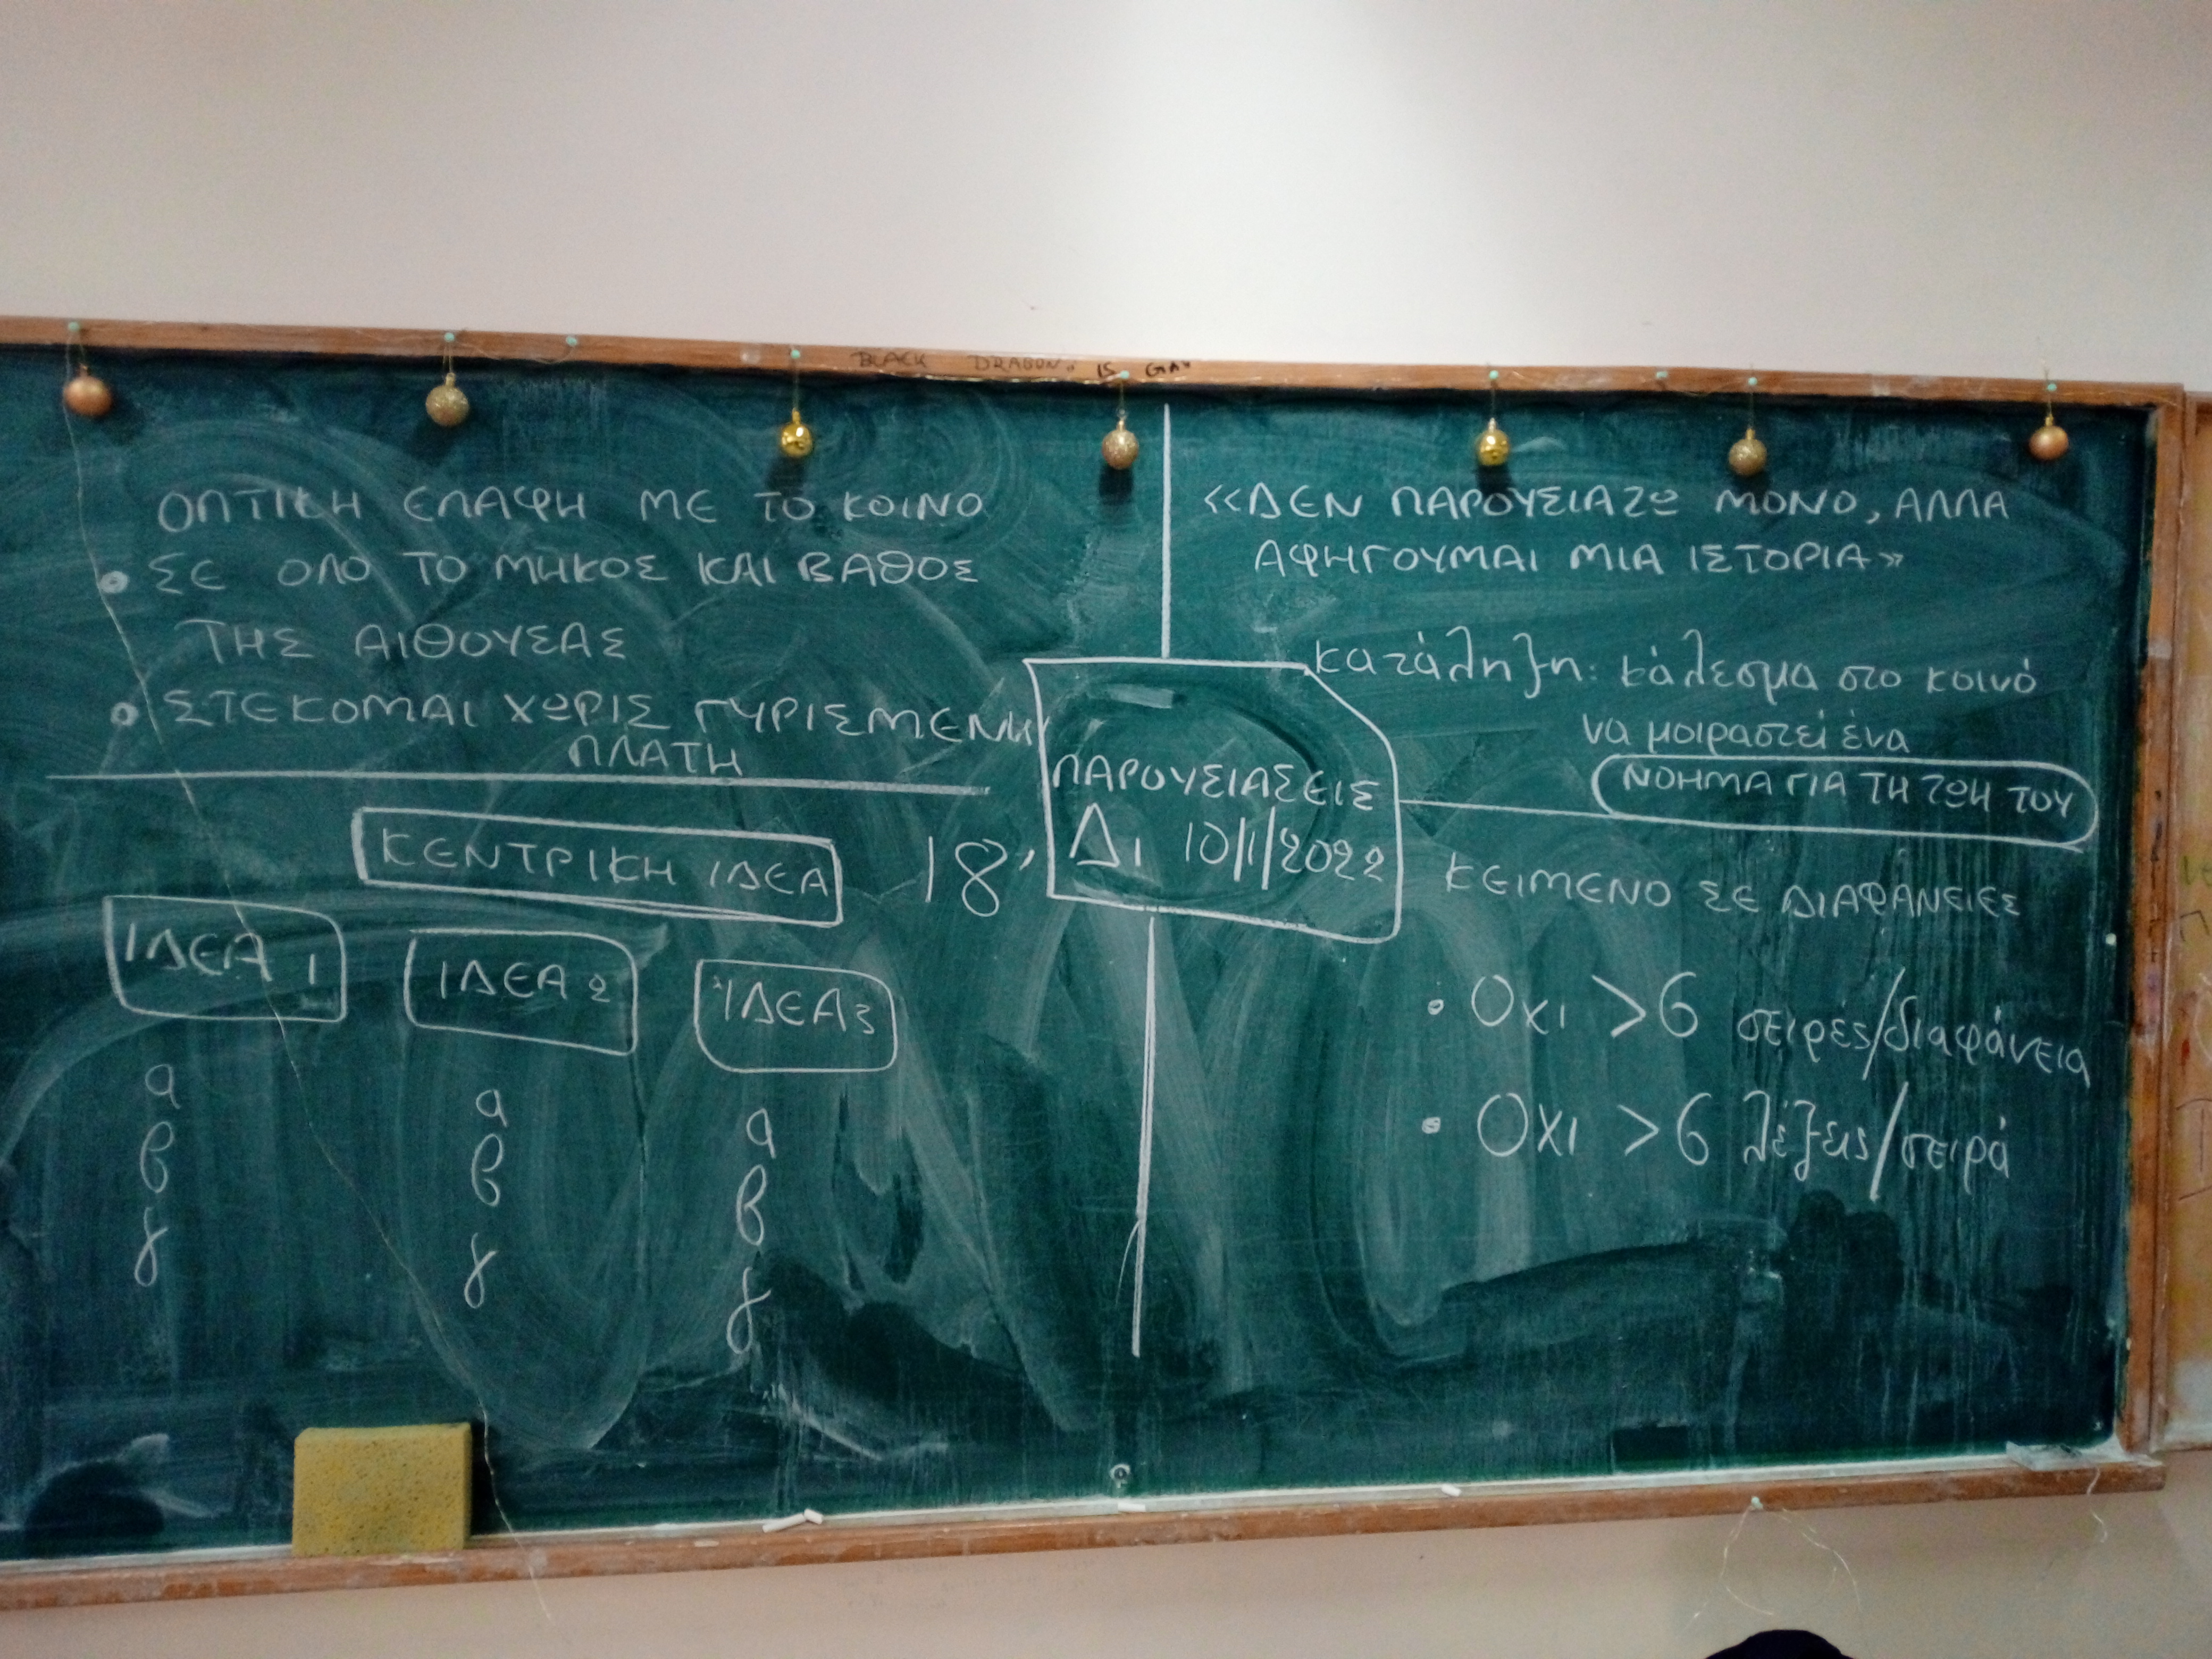 BLACK DRAGON IS
ΟΠΤΙΚΗ ΕΠΑΦΗ ΜΕ ΤΟ ΚΟΙΝΟ
• ΣΕ ΟΛΟ ΤΟ ΜΗΚΟΣ ΚΑΙ ΒΑΘΟΣ
ΤΗΣ ΑΙΘΟΥΣΑΣ
• ΣΤΕΚΟΜΑΙ ΧΩΡΙΣ ΓΥΡΙΣΜΕΝΗ
ΠΛΑΤΗ
«ΔΕΝ ΠΑΡΟΥΣΙΑΖΩ ΜΟΝΟ, ΑΛΛΑ
ΑΦΗΓΟΥΜΑΙ ΜΙΑ ΙΣΤΟΡΙΑ»
κατάληξη: κάλεσμα στο κοινό
να μοιραστεί ένα
ΝΟΗΜΑ ΓΙΑ ΤΗ ΖΩΗ ΤΟΥ
ΠΑΡΟΥΣΙΑΣΕΙΣ
Δι 10/1/2022
ΚΕΝΤΡΙΚΗ ΙΔΕΑ 18'
ΙΔΕΑ 1
α
β
γ
ΙΔΕΑ 2
α
β
γ
ΙΔΕΑ 3
α
β
γ
ΚΕΙΜΕΝΟ ΣΕ ΔΙΑΦΑΝΕΙΕΣ
• Οχι >6 σειρές/διαφάνεια
• Οχι >6 λέξεις/σειρά